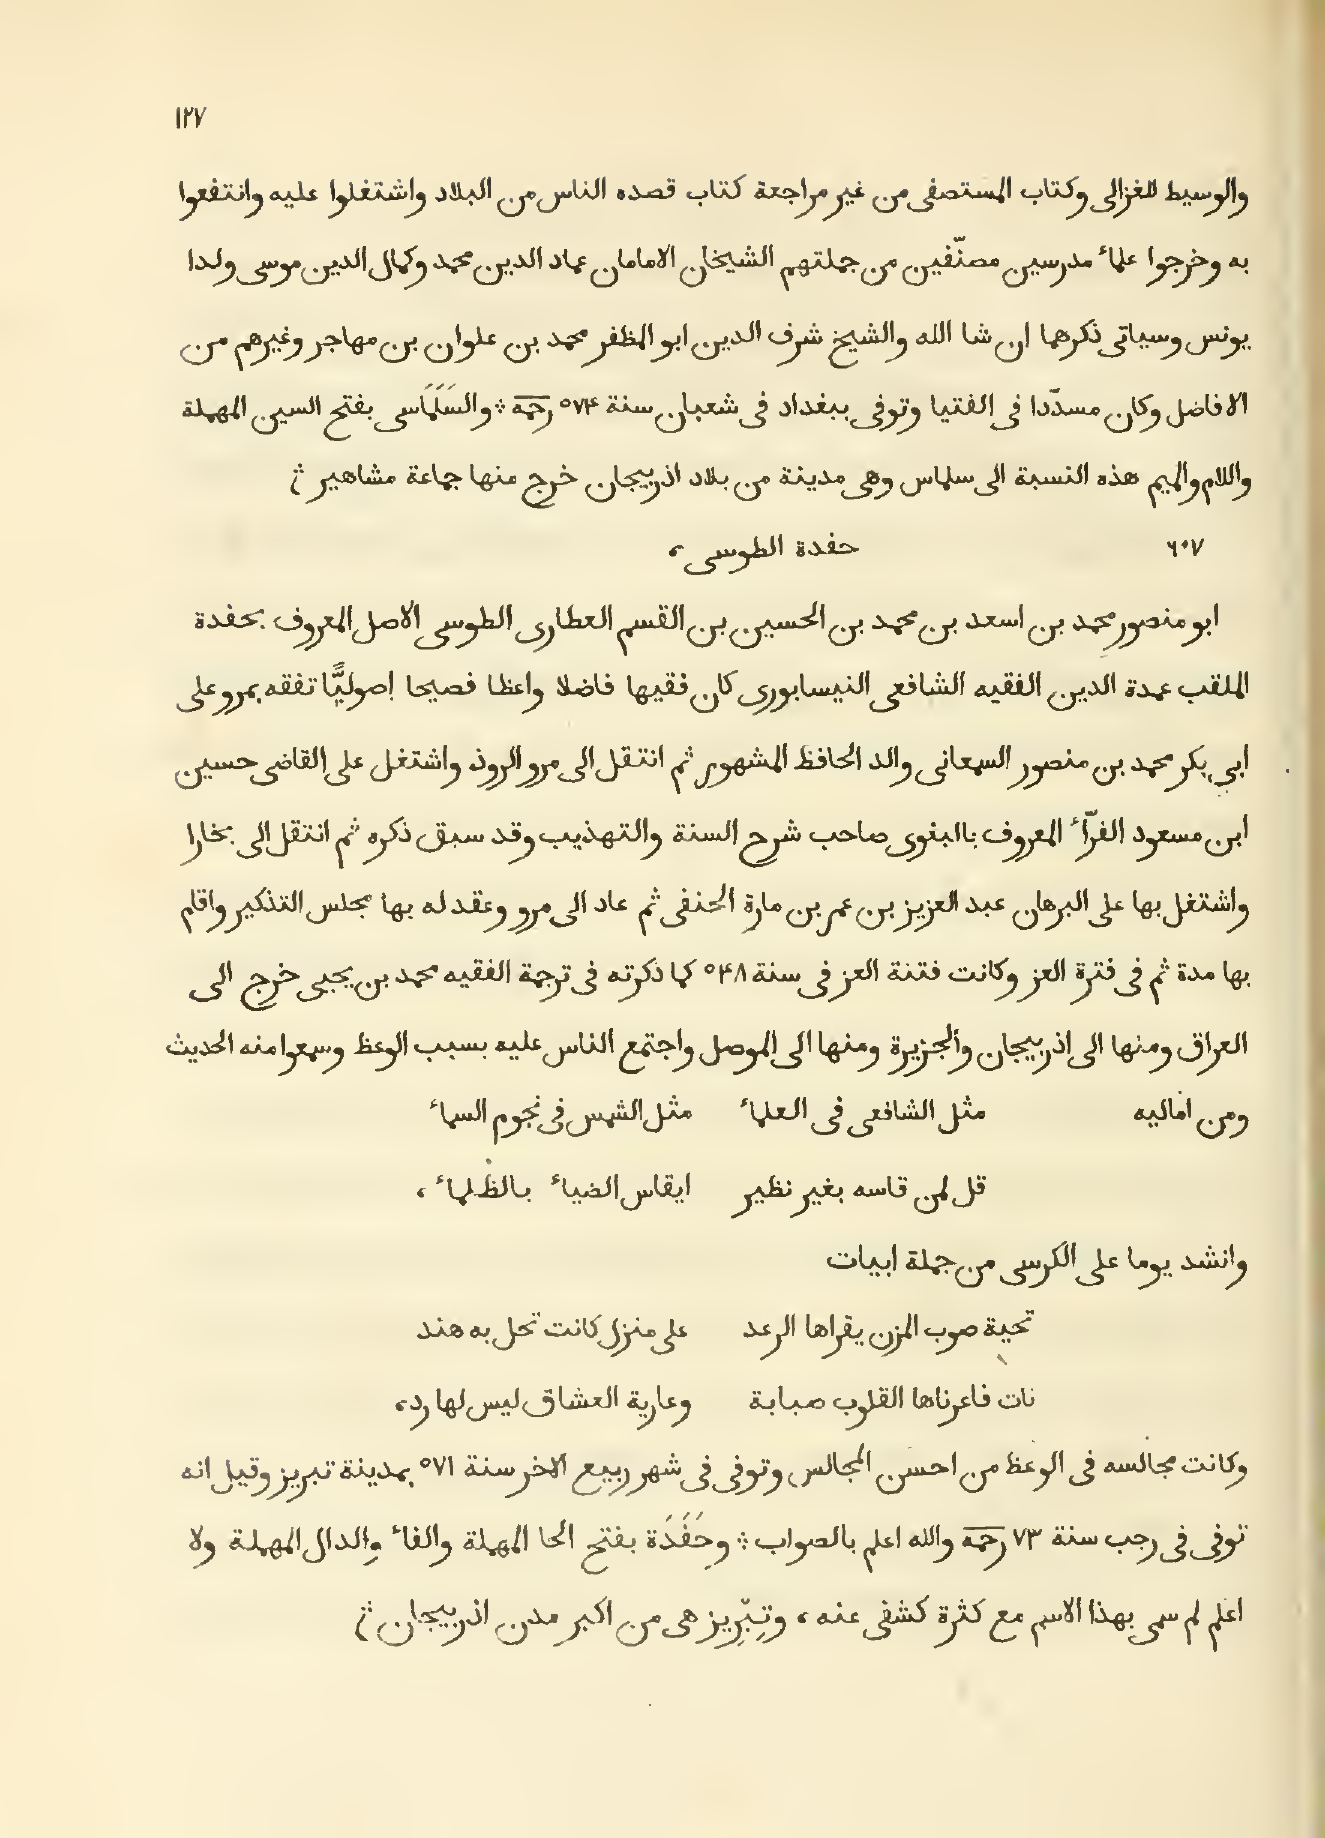 ١٢٧
والوسيط للغزالى وكتاب المستصفى من غير مراجعة كتاب قصده الناس من البلاد واشتغلوا عليه وانتفعوا
به وخرجوا علماء مدرسين مصنّفين من جملتهم الشيخان الامامان عماد الدين محمد وكمال الدين موسى ولدا
يونس وسياتى ذكرهما ان شا الله والشيخ شرف الدين ابو المظفر محمد بن علوان بن مهاجر وغيرهم من
الافاضل وكان مسدّدا فى الفتيا وتوفى ببغداد فى شعبان سنة ٥٧۴ رحمه ⁘ والسَلَمَاسى بفتح السين المهملة
واللام والميم هذه النسبة الى سلماس وهى مدينة من بلاد اذربيجان خرج منها جماعة مشاهير
٦٠٧ حفدة الطوسى،
ابو منصور محمد بن اسعد بن محمد بن الحسين بن القسم العطارى الطوسى الاصل المعروف بحفدة
الملقب عمدة الدين الفقيه الشافعى النيسابورى كان فقيها فاضلا واعظا فصيحا اصوليًّا تفقه بمرو على
ابى بكر محمد بن منصور السمعانى والد الحافظ المشهور ثم انتقل الى مرو الروذ واشتغل على القاضى حسين
ابن مسعود الفرّاء المعروف بالبغوى صاحب شرح السنة والتهذيب وقد سبق ذكره ثم انتقل الى بخارا
واشتغل بها على البرهان عبد العزيز بن عمر بن مارة الحنفى ثم عاد الى مرو وعقد له بها مجلس التذكير واقام
بها مدة ثم فى فترة الغز وكانت فتنة الغز فى سنة ٥۴٨ كما ذكرته فى ترجمة الفقيه محمد بن يحيى خرج الى
العراق ومنها الى اذربيجان والجزيرة ومنها الى الموصل واجتمع الناس عليه بسبب الوعظ وسمعوا منه الحديث
ومن اماليه مثل الشافعى فى العلماء مثل الشمس فى نجوم السماء
قل لمن قاسه بغير نظير ايقاس الضياء بالظلماء،
وانشد يوما على الكرسى من جملة ابيات
تحية صوب المزن يقراها الرعد على منزل كانت تحل به هند
نات فاعرناها القلوب صبابة وعارية العشاق ليس لها رد،
وكانت مجالسه فى الوعظ من احسن المجالس وتوفى فى شهر ربيع الاخر سنة ٥٧١ بمدينة تبريز وقيل انه
توفى فى رجب سنة ٧٣ رحمه والله اعلم بالصواب ⁘ وحَفَدَة بفتح الحا المهملة والفاء والدال المهملة ولا
اعلم لم سمى بهذا الاسم مع كثرة كشفى عنه، وتِبْرِيز هى من اكبر مدن اذربيجان